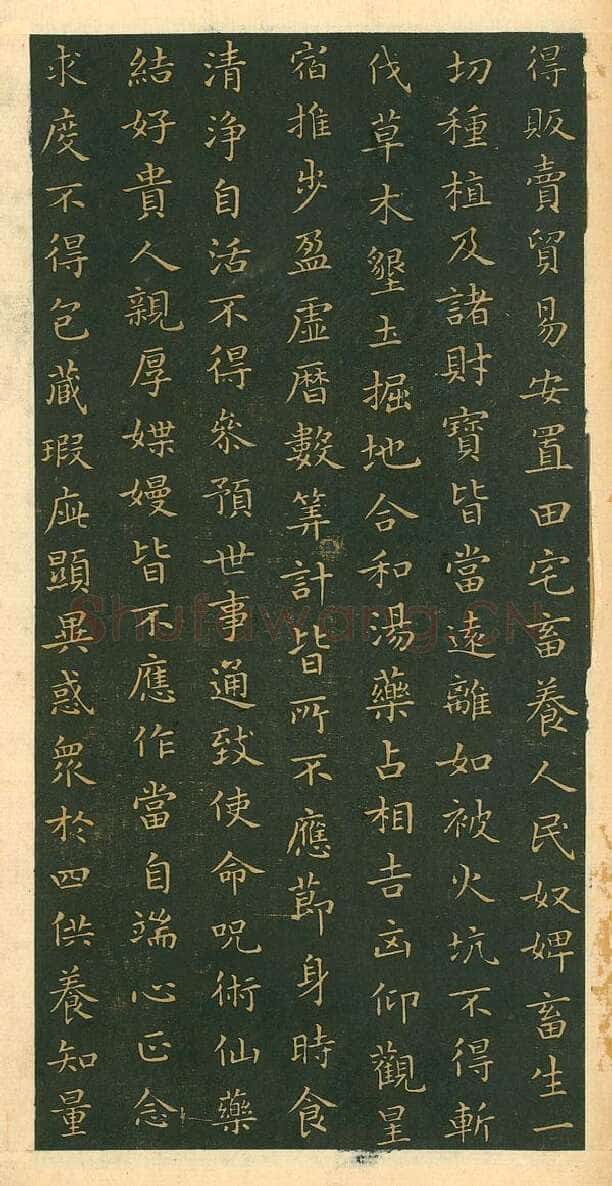 得販賣貿易安置田宅畜養人民奴婢畜生一
切種植及諸財寶皆當遠離如被火坑不得斬
伐草木墾土掘地合和湯藥占相吉凶仰觀星
宿推步盈虛曆數筭計皆所不應節身時食
清淨自活不得叅預世事通致使命呪術仙藥
結好貴人親厚媟嫚皆不應作當自端心正念
求度不得包藏瑕疵顯異惑衆於四供養知量
Shufawang.CN